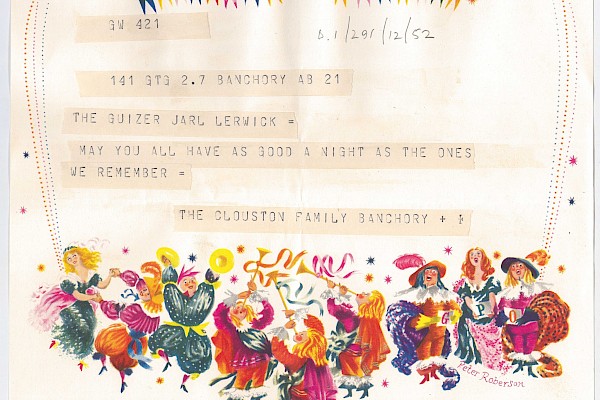 GW 421
D.1/291/12/52
141 GTG 2.7 BANCHORY AB 21
THE GUIZER JARL LERWICK =
MAY YOU ALL HAVE AS GOOD A NIGHT AS THE ONES
WE REMEMBER =
THE CLOUSTON FAMILY BANCHORY + +
G P O
Peter Roberson